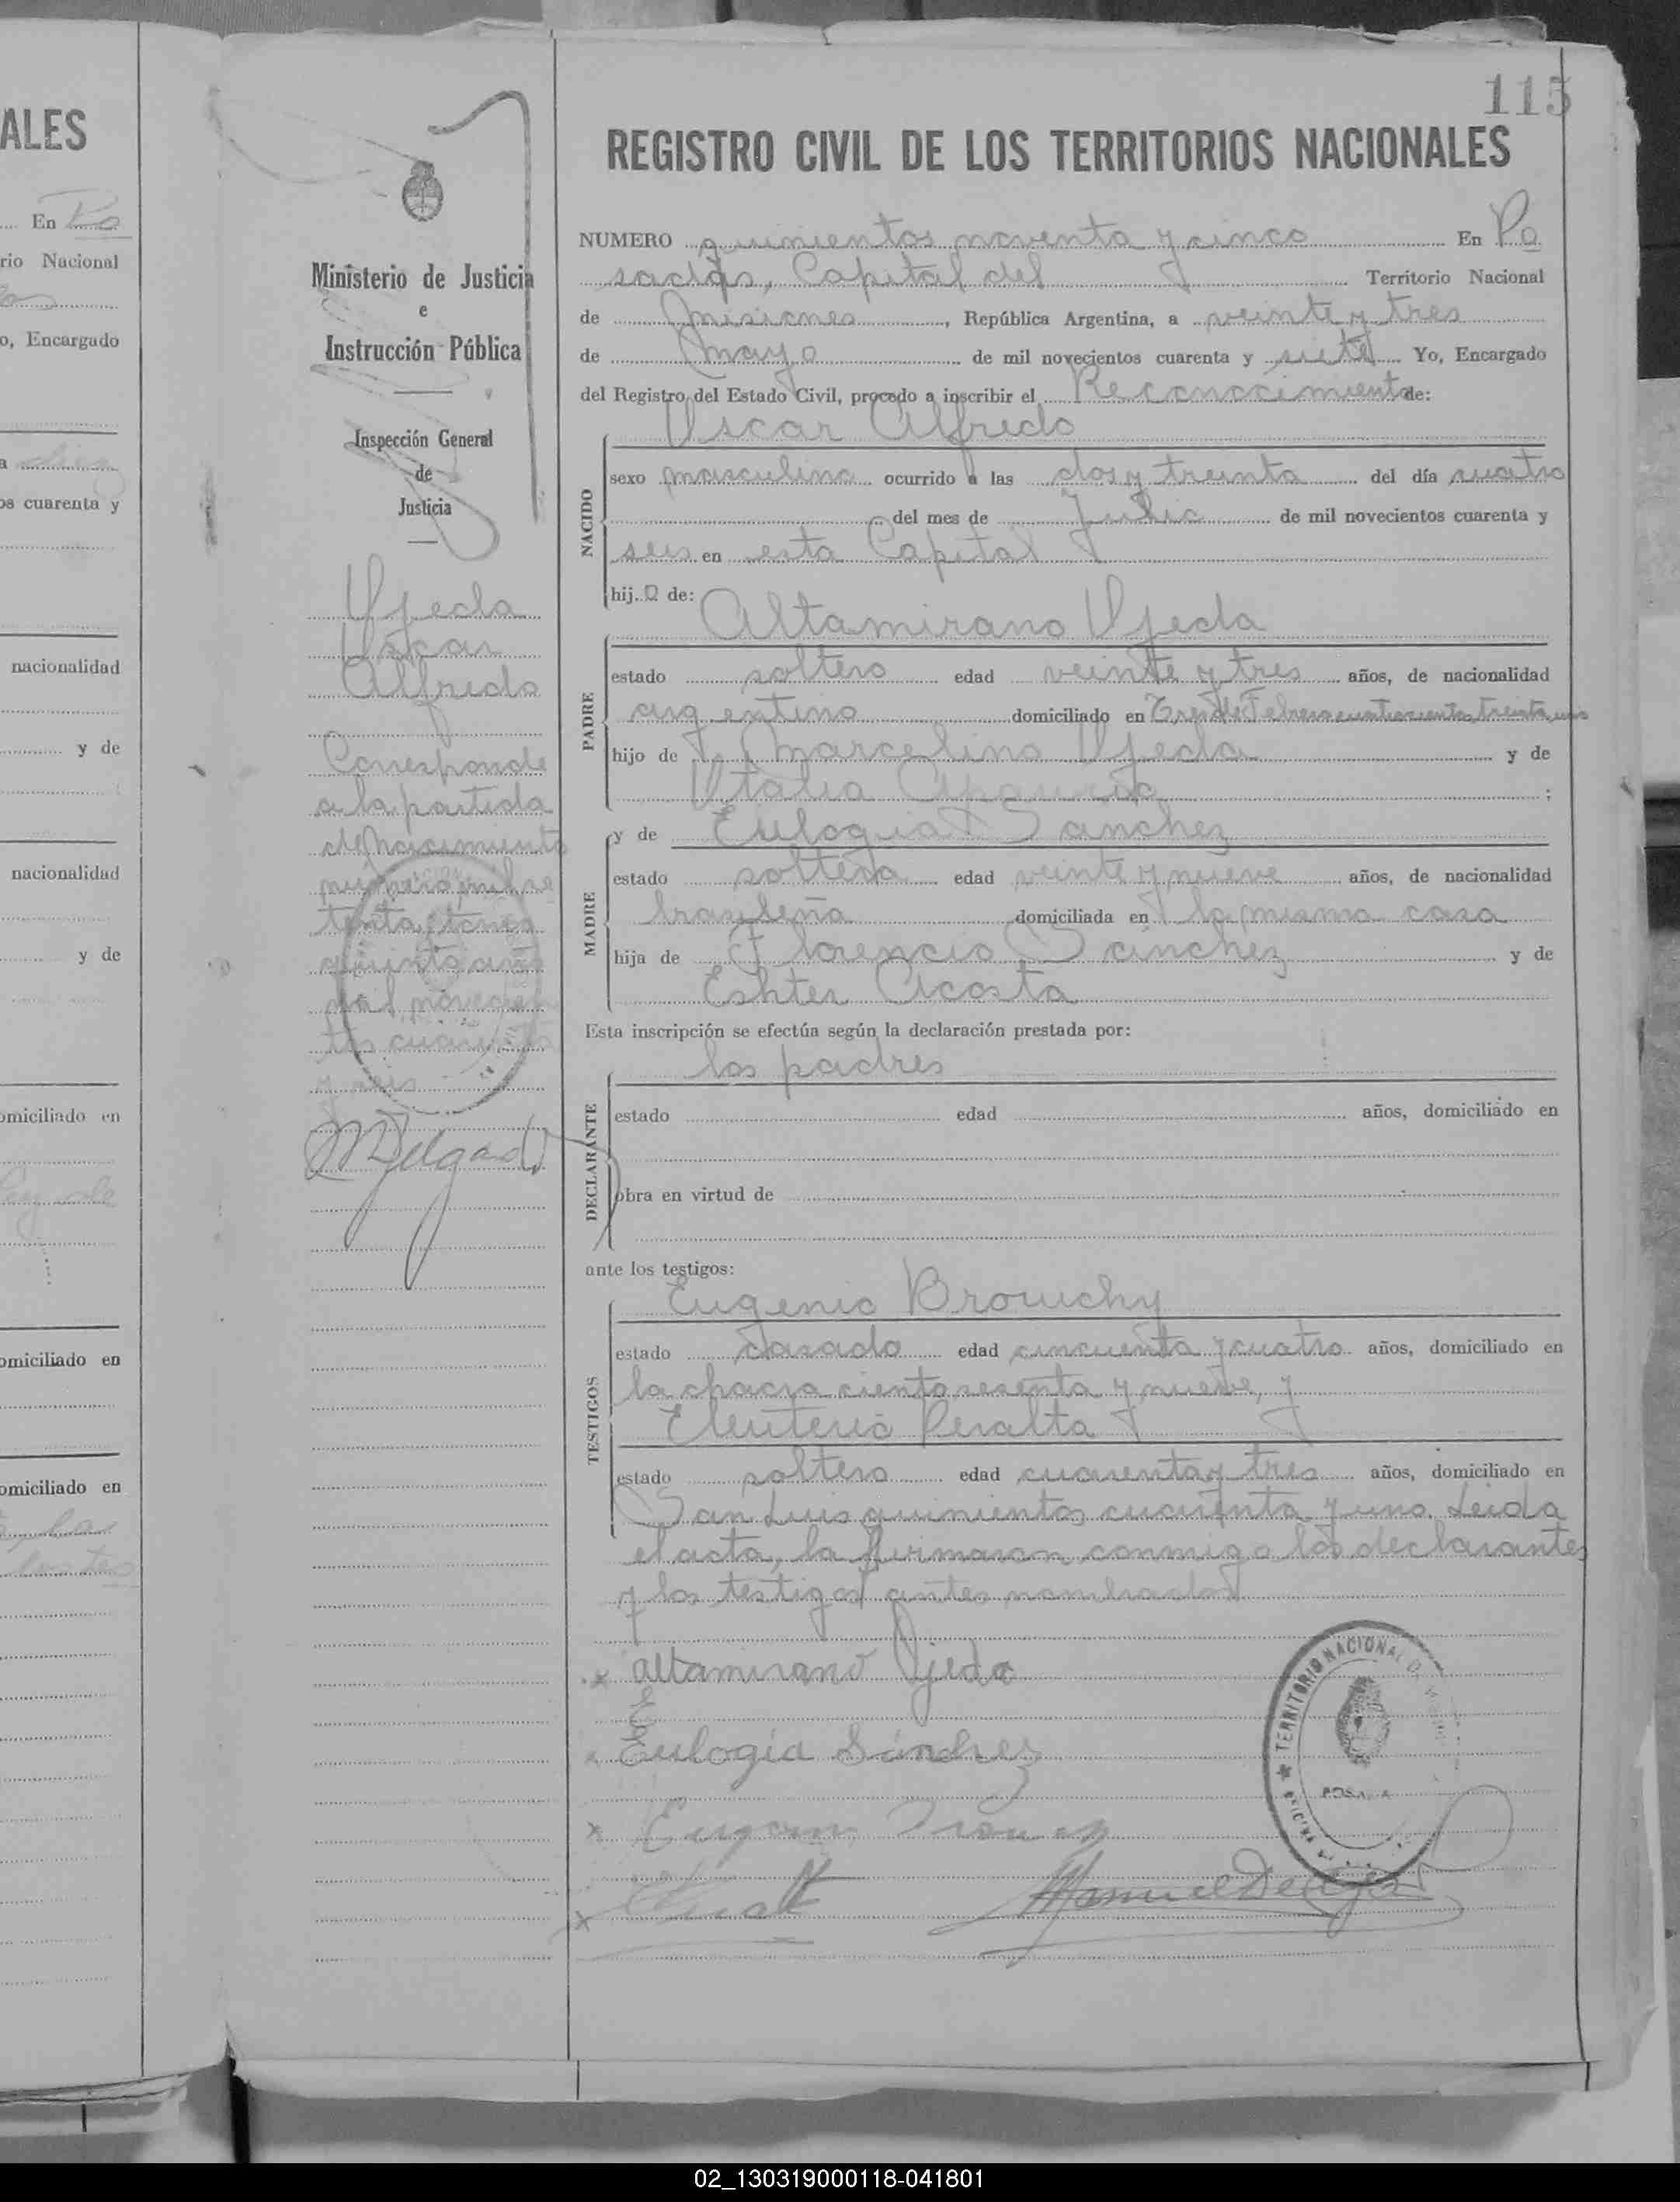 ALES
En Po
rio Nacional
o, Encargado
a
os cuarenta y
nacionalidad
y de
nacionalidad
y de
omiciliado en
omiciliado en
omiciliado en
115
Ministerio de Justicia
e
Instrucción Pública
Inspección General
de
Justicia
Ojeda
Oscar
Alfredo
Corresponde
a la partida
de nacimiento
número
mil novecien
tos cuarenta
y seis
MDelgado
REGISTRO CIVIL DE LOS TERRITORIOS NACIONALES
NUMERO quinientos noventa y cinco En Po
sadas, Capital del Territorio Nacional
de Misiones, República Argentina, a veinte y tres
de Mayo de mil novecientos cuarenta y siete Yo, Encargado
del Registro del Estado Civil, procedo a inscribir el Reconocimiento de:
Oscar Alfredo
NACIDO
sexo masculino ocurrido a las dos y treinta del día cuatro
del mes de Julio de mil novecientos cuarenta y
seis en esta Capital
hijo de:
Altamirano Ojeda
PADRE
estado soltero edad veinte y tres años, de nacionalidad
argentino domiciliado en Tres de Febrero cuatrocientos treinta uno
hijo de Marcelino Ojeda y de
Otalia ;
MADRE
y de Eulogia Sanchez
estado soltera edad veinte y nueve años, de nacionalidad
brasileña domiciliada en la misma casa
hija de Florencio Sánchez y de
Eshter Acosta
Esta inscripción se efectúa según la declaración prestada por:
los padres
DECLARANTE
estado edad años, domiciliado en
obra en virtud de
ante los testigos:
Eugenio Browchy
TESTIGOS
estado casado edad cincuenta y cuatro años, domiciliado en
la chacra ciento sesenta y nueve, y
Eleuterio Peralta
estado soltero edad cuarenta y tres años, domiciliado en
San Luis quinientos cuarenta y uno. Leida
el acta, la firmaron conmigo los declarantes
y los testigos antes nombrados
x altamirano Ojeda
E
x Eulogia Sánchez
x
x Manuel Delgado
TERRITORIO NACIONAL
02_130319000118-041801